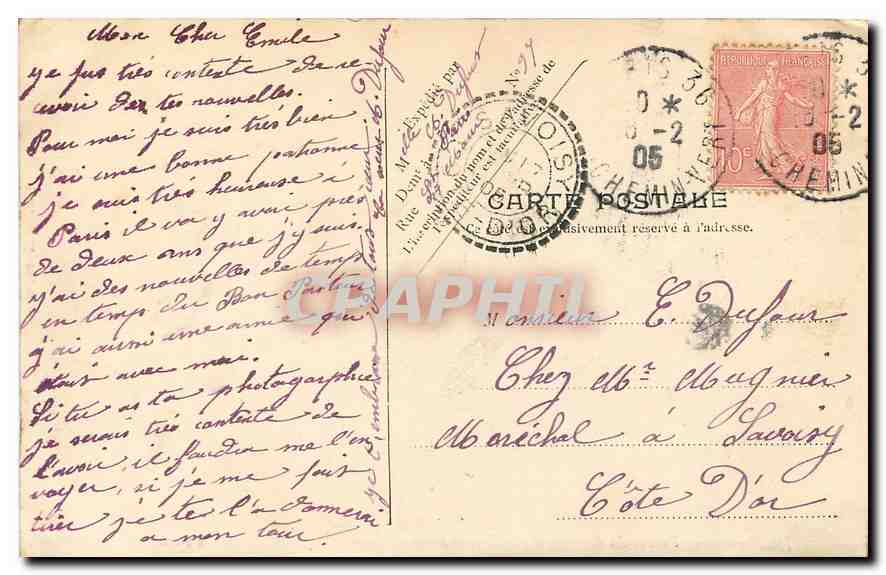 Mon Cher Emile
je fus très contente de re
cevoir de tes nouvelles.
Pour moi je suis très bien
j'ai une bonne patronne
je suis très heureuse i
Paris il va y avoir près
de deux ans que j'y suis.
j'ai des nouvelles de temp
en temps du Bon Pasteur
j'ai aussi une amie qui
était avec moi.
Si tu as ta photogarphie
je serais très contente de
l'avoir, il faudra me l'en
voyer, si je me fait
tirer je te l'a donnerai
a mon tour.
je t'embrasse ta sœur
Dufour
Expédié par
Melle Dufour
Demeurant à Paris
Rue N° 97
L'inscription du nom et de l'adresse de
l'expéditeur est mentionnée
PARIS 36
05
CHEMIN-VERT
REPUBLIQUE FRANÇAISE
10c
CHEMIN
CARTE POSTALE
Ce côté est exclusivement réservé à l'adresse.
CPAPHIL
Monsieur E. Dufour
Chez Mr Mugnier
Maréchal à Savoisy
Côte D'or